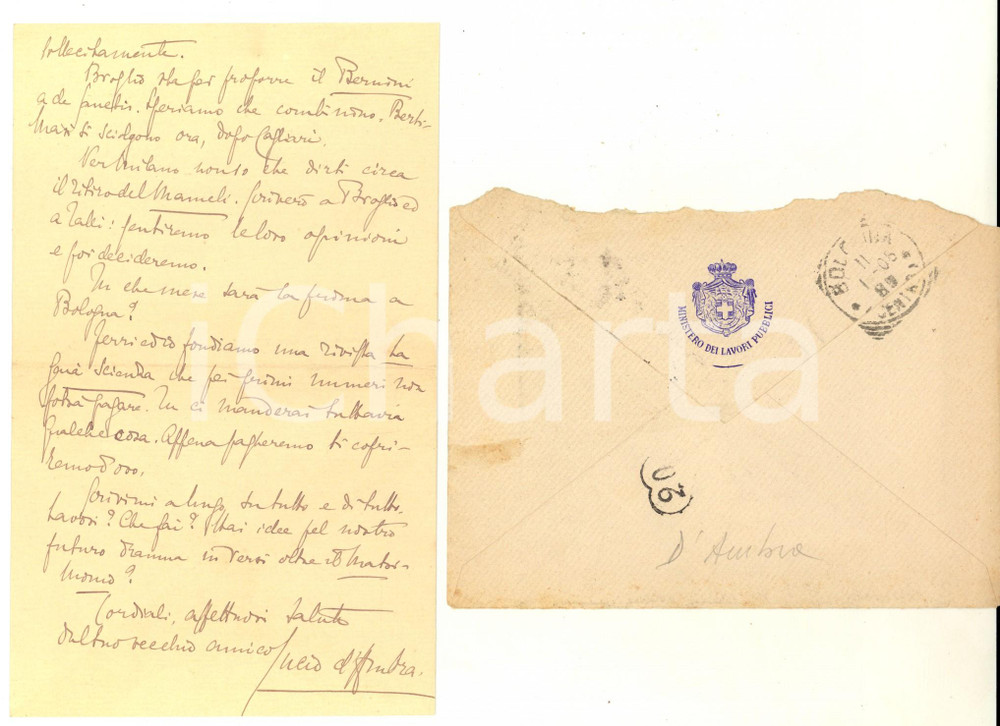 sollecitamente.
Broglio sta per proporre il Bernini
a de Sanctis. Speriamo che combinino. Berti-
Masi si sciolgono ora, dopo Cagliari.
Per Milano non so che dirti circa
il ritiro del Mameli. Scriverò a Broglio ed
a Talli: sentiremo le loro opinioni
e poi decideremo.
In che mese sarà la prima a
Bologna?
Ferri ed io fondiamo una rivista la
che pei primi numeri non
potrà pagare. Tu ci manderai tuttavia
qualche cosa. Appena pagheremo ti copri-
remo d'oro.
Scrivimi a lungo, su tutto e di tutto.
Lavori? Che fai? Hai idee pel nostro
futuro dramma in versi oltre il Matri-
monio?
Cordiali, affettuosi saluti
dal tuo vecchio amico Lucio d'Ambra.
MINISTERO DEI LAVORI PUBBLICI
BOLOGNA
11
1-06
8M
20
D'Ambra
iCharta